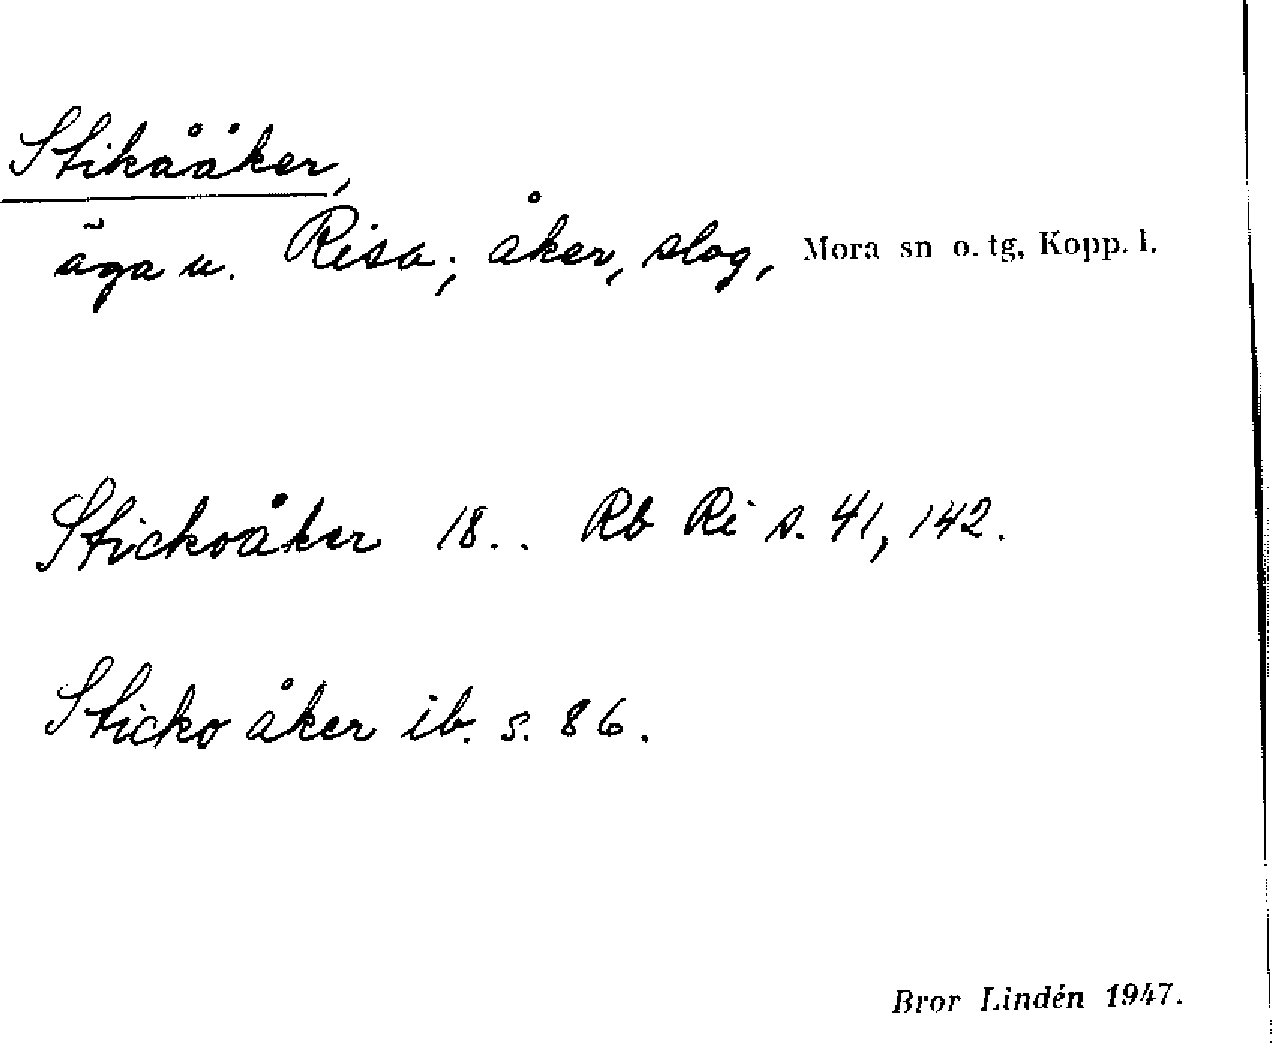 Stikååker,
äga u. Risa; åker, slog, Mora sn o. tg, Kopp. l.
Stickoåker 18.. Rb Ri s. 41, 142.
Sticko åker ib. s. 86.
Bror Lindén 1947.